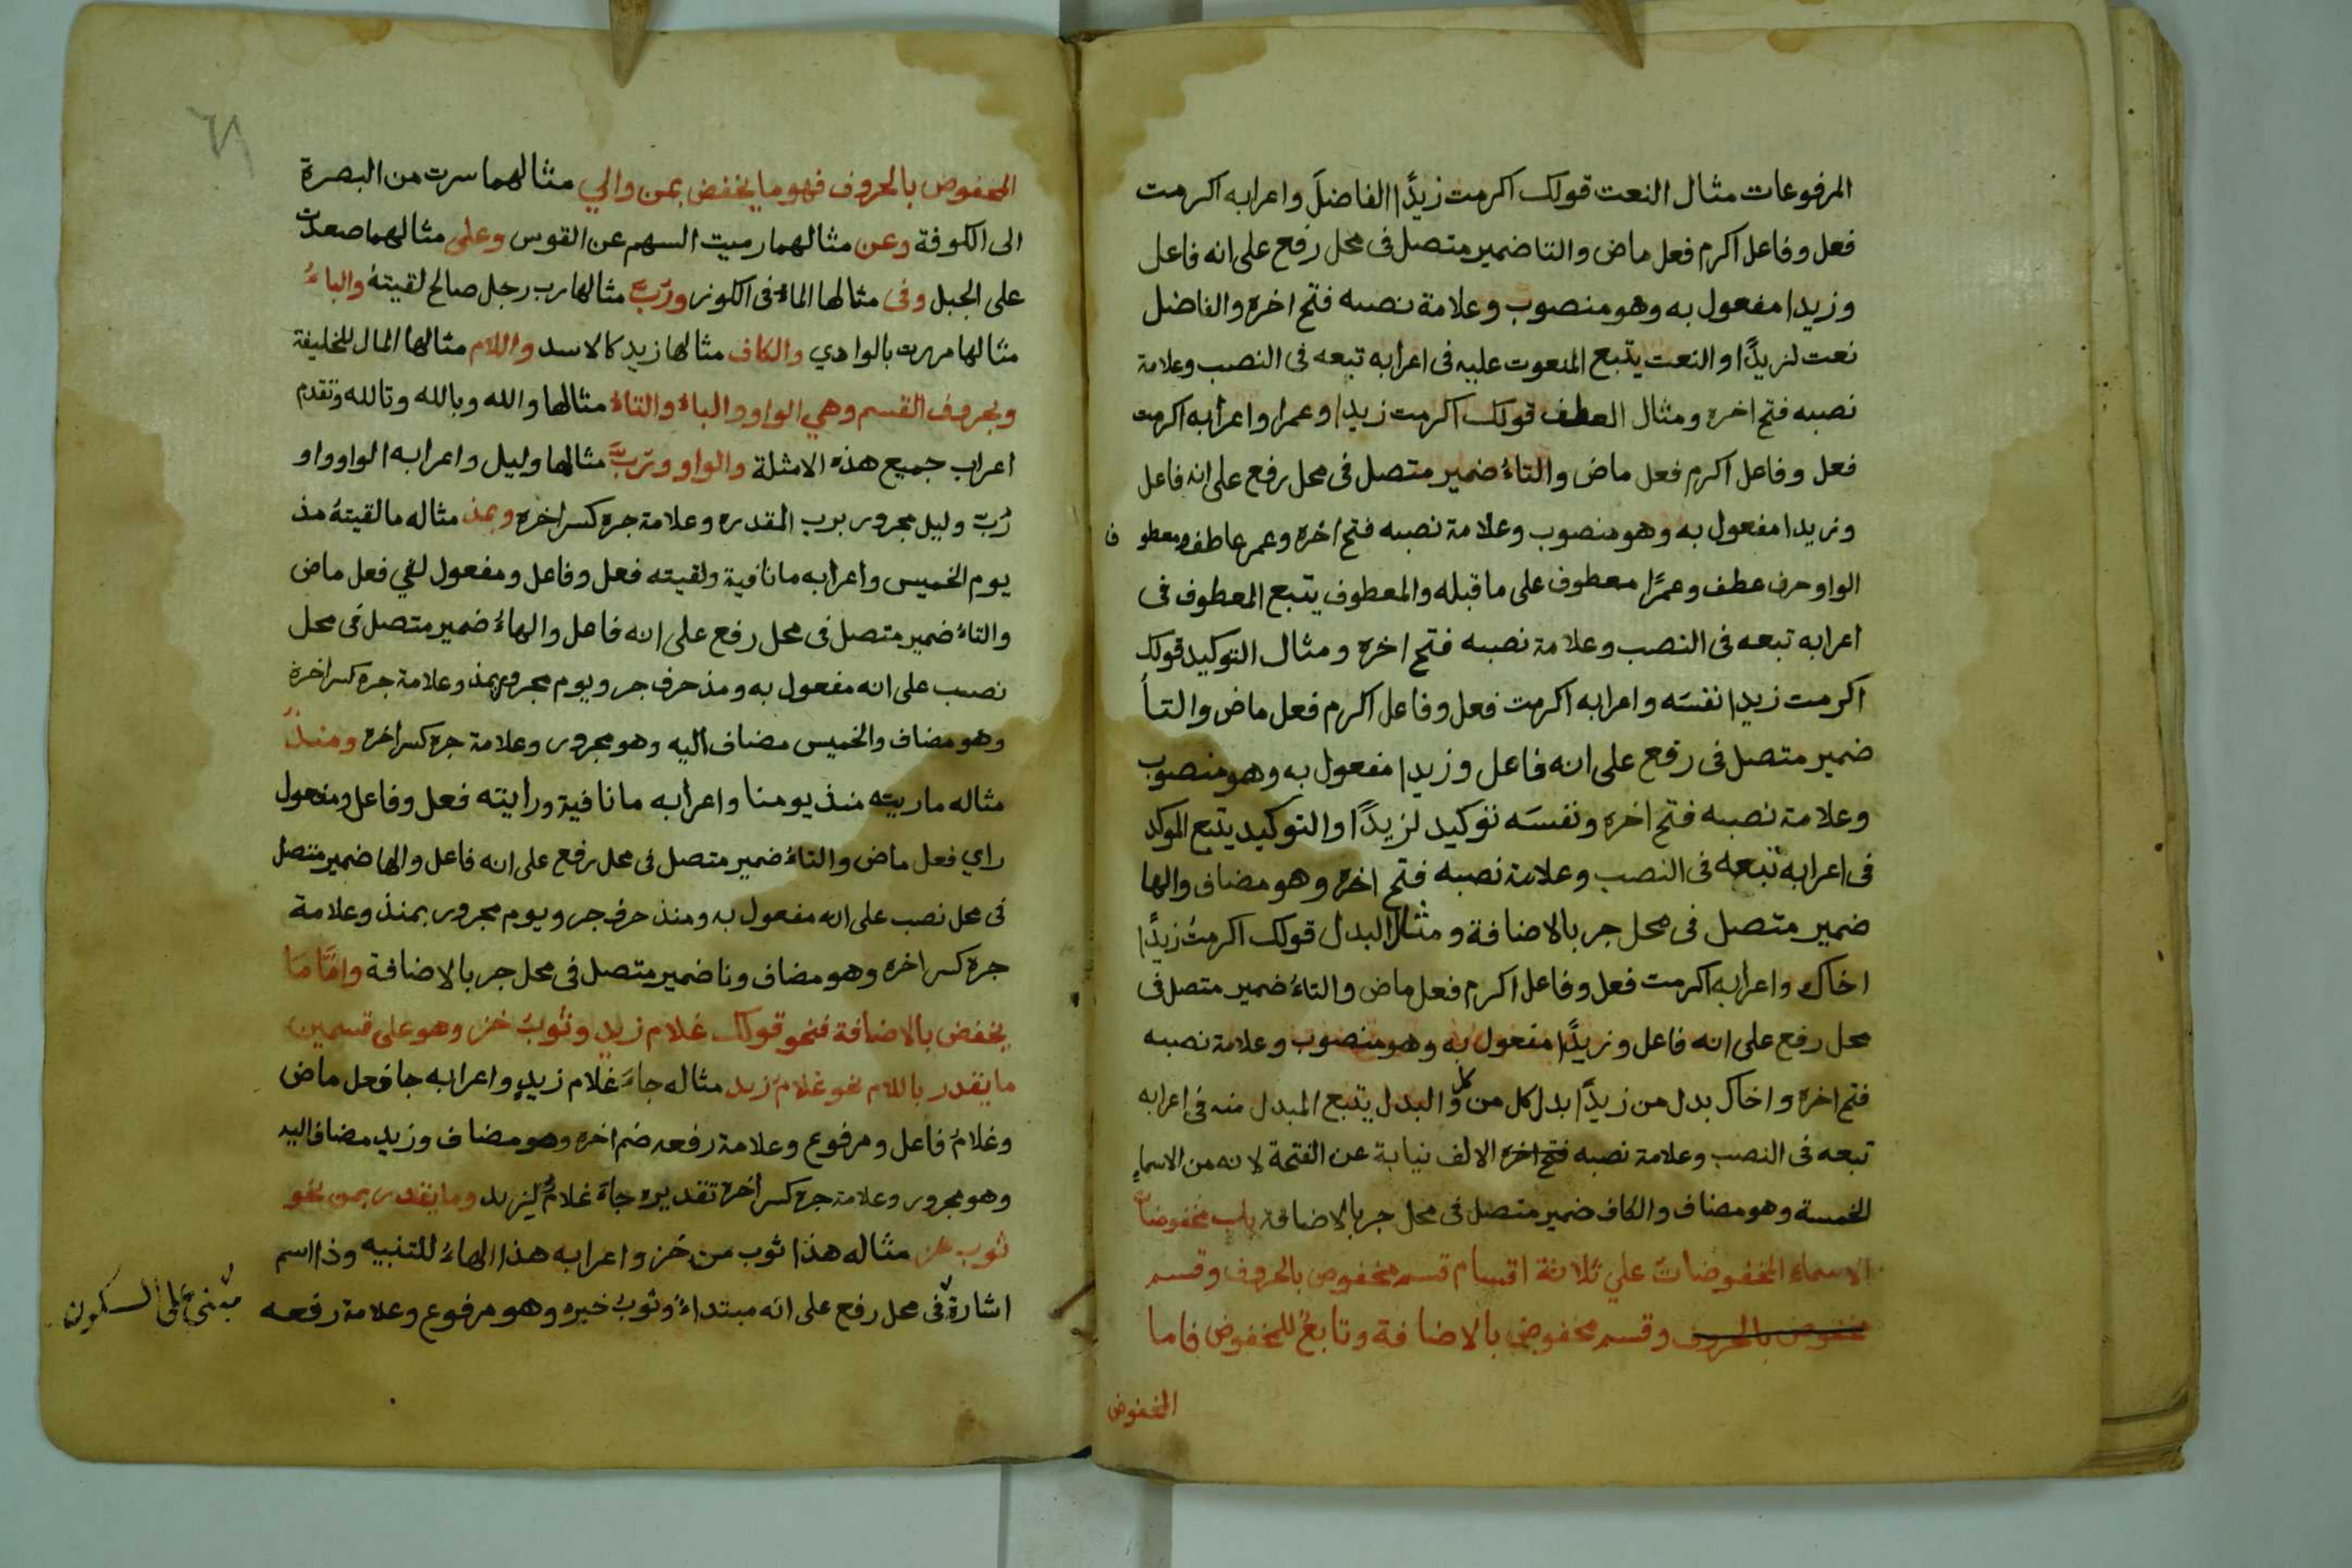 المرفوعات مثال النعت قولك اكرمت زيدًا الفاضلَ واعرابه اكرمت
فعل وفاعل اكرم فعل ماض والتا ضمير متصل فى محل رفع على انه فاعل
وزيدا مفعول به وهو منصوب وعلامة نصبه فتح اخره والفاضل
نعت لزيدًا والنعت يتبع المنعوت عليه فى اعرابه تبعه فى النصب وعلامة
نصبه فتح اخره ومثال العطف قولك اكرمت زيدا وعمرا واعرابه اكرمت
فعل وفاعل اكرم فعل ماض والتاءُ ضمير متصل فى محل رفع على انه فاعل
وزيدا مفعول به وهو منصوب وعلامة نصبه فتح اخره وعمر عاطف ومعطوف
الواو حرف عطف وعمرًا معطوف على ما قبله والمعطوف يتبع المعطوف فى
اعرابه تبعه فى النصب وعلامة نصبه فتح اخره ومثال التوكيد قولك
اكرمت زيدا نفسَه واعرابه اكرمت فعل وفاعل اكرم فعل ماض والتأ
ضمير متصل فى رفع على انه فاعل وزيدا مفعول به وهو منصوب
وعلامة نصبه فتح اخره ونفسَه توكيد لزيدًا والتوكيد يتبع الموكد
فى اعرابه تبعه فى النصب وعلامة نصبه فتح اخره وهو مضاف والها
ضمير متصل فى محل جر بالاضافة ومثال البدل قولك اكرمتُ زيدًا
اخاك واعرابه اكرمت فعل وفاعل اكرم فعل ماض والتاءُ ضمير متصل فى
محل رفع على انه فاعل وزيدًا مفعول به وهو منصوب وعلامة نصبه
فتح اخره واخاك بدل من زيدًا بدل كل من كل والبدل يتبع المبدل منه فى اعرابه
تبعه فى النصب وعلامة نصبه فتح اخره الالف نيابة عن الفتحة لانه من الاسماءِ
الخمسة وهو مضاف والكاف ضمير متصل فى محل جر بالاضافة باب مخفوضات
الاسماء المخفوضات علي ثلاثة اقسام قسم مخفوض بالحروف وقسم
مخفوض بالحروف وقسم مخفوض بالاضافة وتابعٌ للمخفوض فاما
المخفوض
٦٩
المخفوض بالحروف فهو ما يخفض بمن والي مثالهما سرت من البصرة
الى الكوفة وعن مثالهما رميت السهم عن القوس وعلى مثالهما صعدت
على الجبل وفى مثالها الماءُ فى الكوز ورُبّ مثالها رب رجل صالح لقيتهُ والباءُ
مثالها مررت بالوادي والكاف مثالها زيد كالاسد واللام مثالها المال للخليفة
وبحروف القسم وهي الواو والباءُ والتاءُ مثالها والله وبالله وتالله وتقدم
اعراب جميع هذه الامثلة والواو ورُبَّ مثالها وليل واعرابه الواو واو
رُبّ وليل مجرور برب المقدره وعلامة جره كسر اخره وبمذ مثاله ما لقيتهُ مذ
يوم الخميس واعرابه ما نافية ولقيته فعل وفاعل ومفعول لقي فعل ماض
والتاءُ ضمير متصل فى محل رفع على انه فاعل والهاءُ ضمير متصل فى محل
نصب على انه مفعول به ومذ حرف جر ويوم مجرور بمذ وعلامة جره كسر اخرة
وهو مضاف والخميس مضاف اليه وهو مجرور وعلامة جره كسر اخره ومنذُ
مثاله ما ريته منذ يومنا واعرابه ما نافية ورايته فعل وفاعل ومفعول
راي فعل ماض والتاءُ ضمير متصل فى محل رفع على انه فاعل والها ضمير متصل
فى محل نصب على انه مفعول به ومنذ حرف جر ويوم مجرور بمنذ وعلامة
جره كسر اخره وهو مضاف ونا ضمير متصل فى محل جر بالاضافة وامَّا مَا
يخفض بالاضافة فنحو قولك غلام زيدٍ وثوبُ خز وهو على قسمين
ما يقدر باللام نحو غلامُ زيد مثاله جاءَ غلام زيدٍ واعرابه جا فعل ماض
وغلامُ فاعل ومرفوع وعلامة رفعه ضم اخره وهو مضاف وزيد مضاف اليه
وهو مجرور وعلامة جره كسر اخره تقديره جاءَ غلامٌ لِزيد وما يقدر بمن نحو
ثوب خز مثاله هذا ثوب من خَز واعرابه هذا الهاءُ للتنبيه وذا اسم
اشارة فى محل رفع على انه مبتداءٌ وثوبُ خبره وهو مرفوع وعلامة رفعه
مبنى على السكون